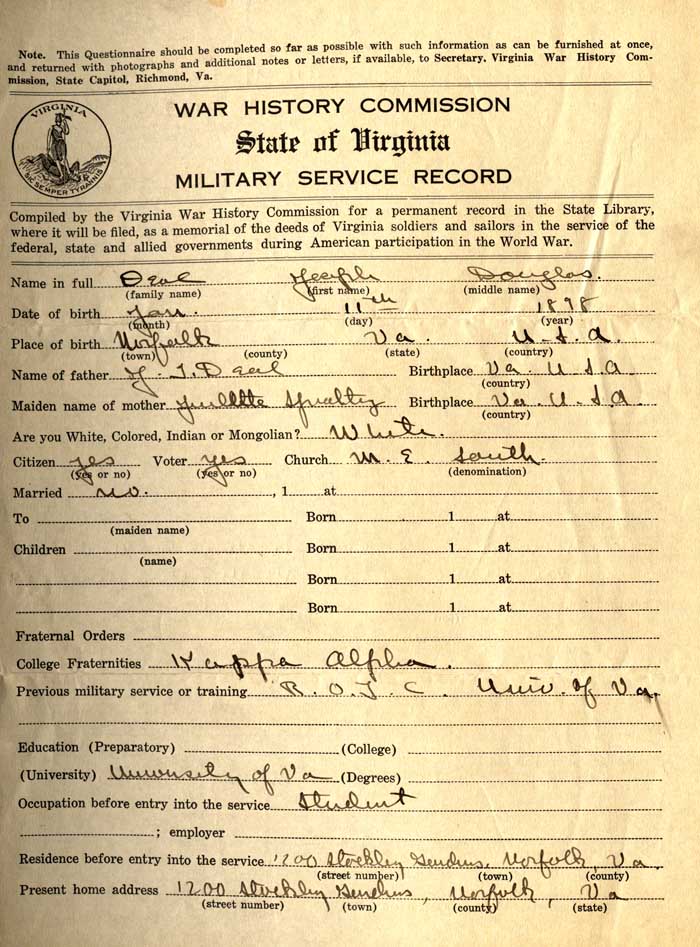 Note. This Questionnaire should be completed so far as possible with such information as can be furnished at once,
and returned with photographs and additional notes or letters, if available, to Secretary. Virginia War History Com-
mission, State Capitol, Richmond, Va.
VIRGINIA
SIC SEMPER TYRANNIS
WAR HISTORY COMMISSION
State of Virginia
MILITARY SERVICE RECORD
Compiled by the Virginia War History Commission for a permanent record in the State Library,
where it will be filed, as a memorial of the deeds of Virginia soldiers and sailors in the service of the
federal, state and allied governments during American participation in the World War.
Name in full Deal Joseph Douglas.
(family name) (first name) (middle name)
Date of birth Jan. 11th 1898
(month) (day) (year)
Place of birth Norfolk Va. U.S.A.
(town) (county) (state) (country)
Name of father J. T. Deal Birthplace Va U S A
(country)
Maiden name of mother Birthplace Va. U.S.A.
(country)
Are you White, Colored, Indian or Mongolian? White.
Citizen yes Voter yes Church M. E. South.
(yes or no) (yes or no) (denomination)
Married no. , 1 at
To Born 1 at
(maiden name)
Children Born 1 at
(name)
Born 1 at
Born 1 at
Fraternal Orders
College Fraternities Kappa Alpha.
Previous military service or training R. O. T. C. Univ. of Va.
Education (Preparatory) (College)
(University) University of Va (Degrees)
Occupation before entry into the service Student
; employer
Residence before entry into the service 1200 Stockley Gardens, Norfolk, Va.
(street number) (town) (county)
Present home address 1200 Stockley Gardens, Norfolk, Va
(street number) (town) (county) (state)